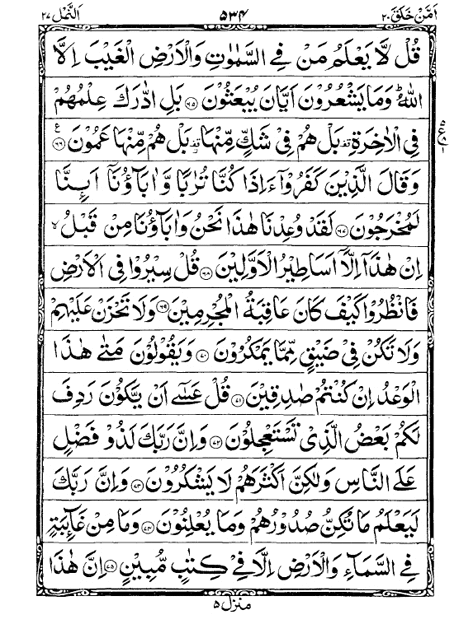 اَمَّنْ خَلَقَ ٢٠ ٥٣٤ اَلنَّمْل ٢٧
قُلْ لَّا يَعْلَمُ مَنْ فِي السَّمٰوٰتِ وَالْاَرْضِ الْغَيْبَ اِلَّا
اللّٰهُ ؕ وَمَا يَشْعُرُوْنَ اَيَّانَ يُبْعَثُوْنَ ﴿٦٥﴾ بَلِ ادّٰرَكَ عِلْمُهُمْ
فِي الْاٰخِرَةِ ۫ بَلْ هُمْ فِيْ شَكٍّ مِّنْهَا ۫ بَلْ هُمْ مِّنْهَا عَمُوْنَ ﴿٦٦﴾
وَقَالَ الَّذِيْنَ كَفَرُوْۤا ءَاِذَا كُنَّا تُرٰبًا وَّاٰبَآؤُنَاۤ اَىِٕنَّا
لَمُخْرَجُوْنَ ﴿٦٧﴾ لَقَدْ وُعِدْنَا هٰذَا نَحْنُ وَاٰبَآؤُنَا مِنْ قَبْلُ ۙ
اِنْ هٰذَاۤ اِلَّاۤ اَسَاطِيْرُ الْاَوَّلِيْنَ ﴿٦٨﴾ قُلْ سِيْرُوْا فِي الْاَرْضِ
فَانْظُرُوْا كَيْفَ كَانَ عَاقِبَةُ الْمُجْرِمِيْنَ ﴿٦٩﴾ وَلَا تَحْزَنْ عَلَيْهِمْ
وَلَا تَكُنْ فِيْ ضَيْقٍ مِّمَّا يَمْكُرُوْنَ ﴿٧٠﴾ وَيَقُوْلُوْنَ مَتٰى هٰذَا
الْوَعْدُ اِنْ كُنْتُمْ صٰدِقِيْنَ ﴿٧١﴾ قُلْ عَسٰۤى اَنْ يَّكُوْنَ رَدِفَ
لَكُمْ بَعْضُ الَّذِيْ تَسْتَعْجِلُوْنَ ﴿٧٢﴾ وَاِنَّ رَبَّكَ لَذُوْ فَضْلٍ
عَلَى النَّاسِ وَلٰكِنَّ اَكْثَرَهُمْ لَا يَشْكُرُوْنَ ﴿٧٣﴾ وَاِنَّ رَبَّكَ
لَيَعْلَمُ مَا تُكِنُّ صُدُوْرُهُمْ وَمَا يُعْلِنُوْنَ ﴿٧٤﴾ وَمَا مِنْ غَآىِٕبَةٍ
فِي السَّمَآءِ وَالْاَرْضِ اِلَّا فِيْ كِتٰبٍ مُّبِيْنٍ ﴿٧٥﴾ اِنَّ هٰذَا
منزل ٥